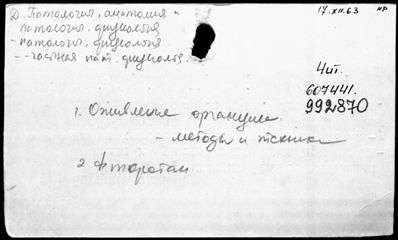 Д. Патология, анатомия -
17.XII.63
НР
патология. физиология
- патология, физиология
- - частная пат. физиология.
4 шт.
607441.
992870
1. Оживление организма
- методы и техника
2 Фторотан